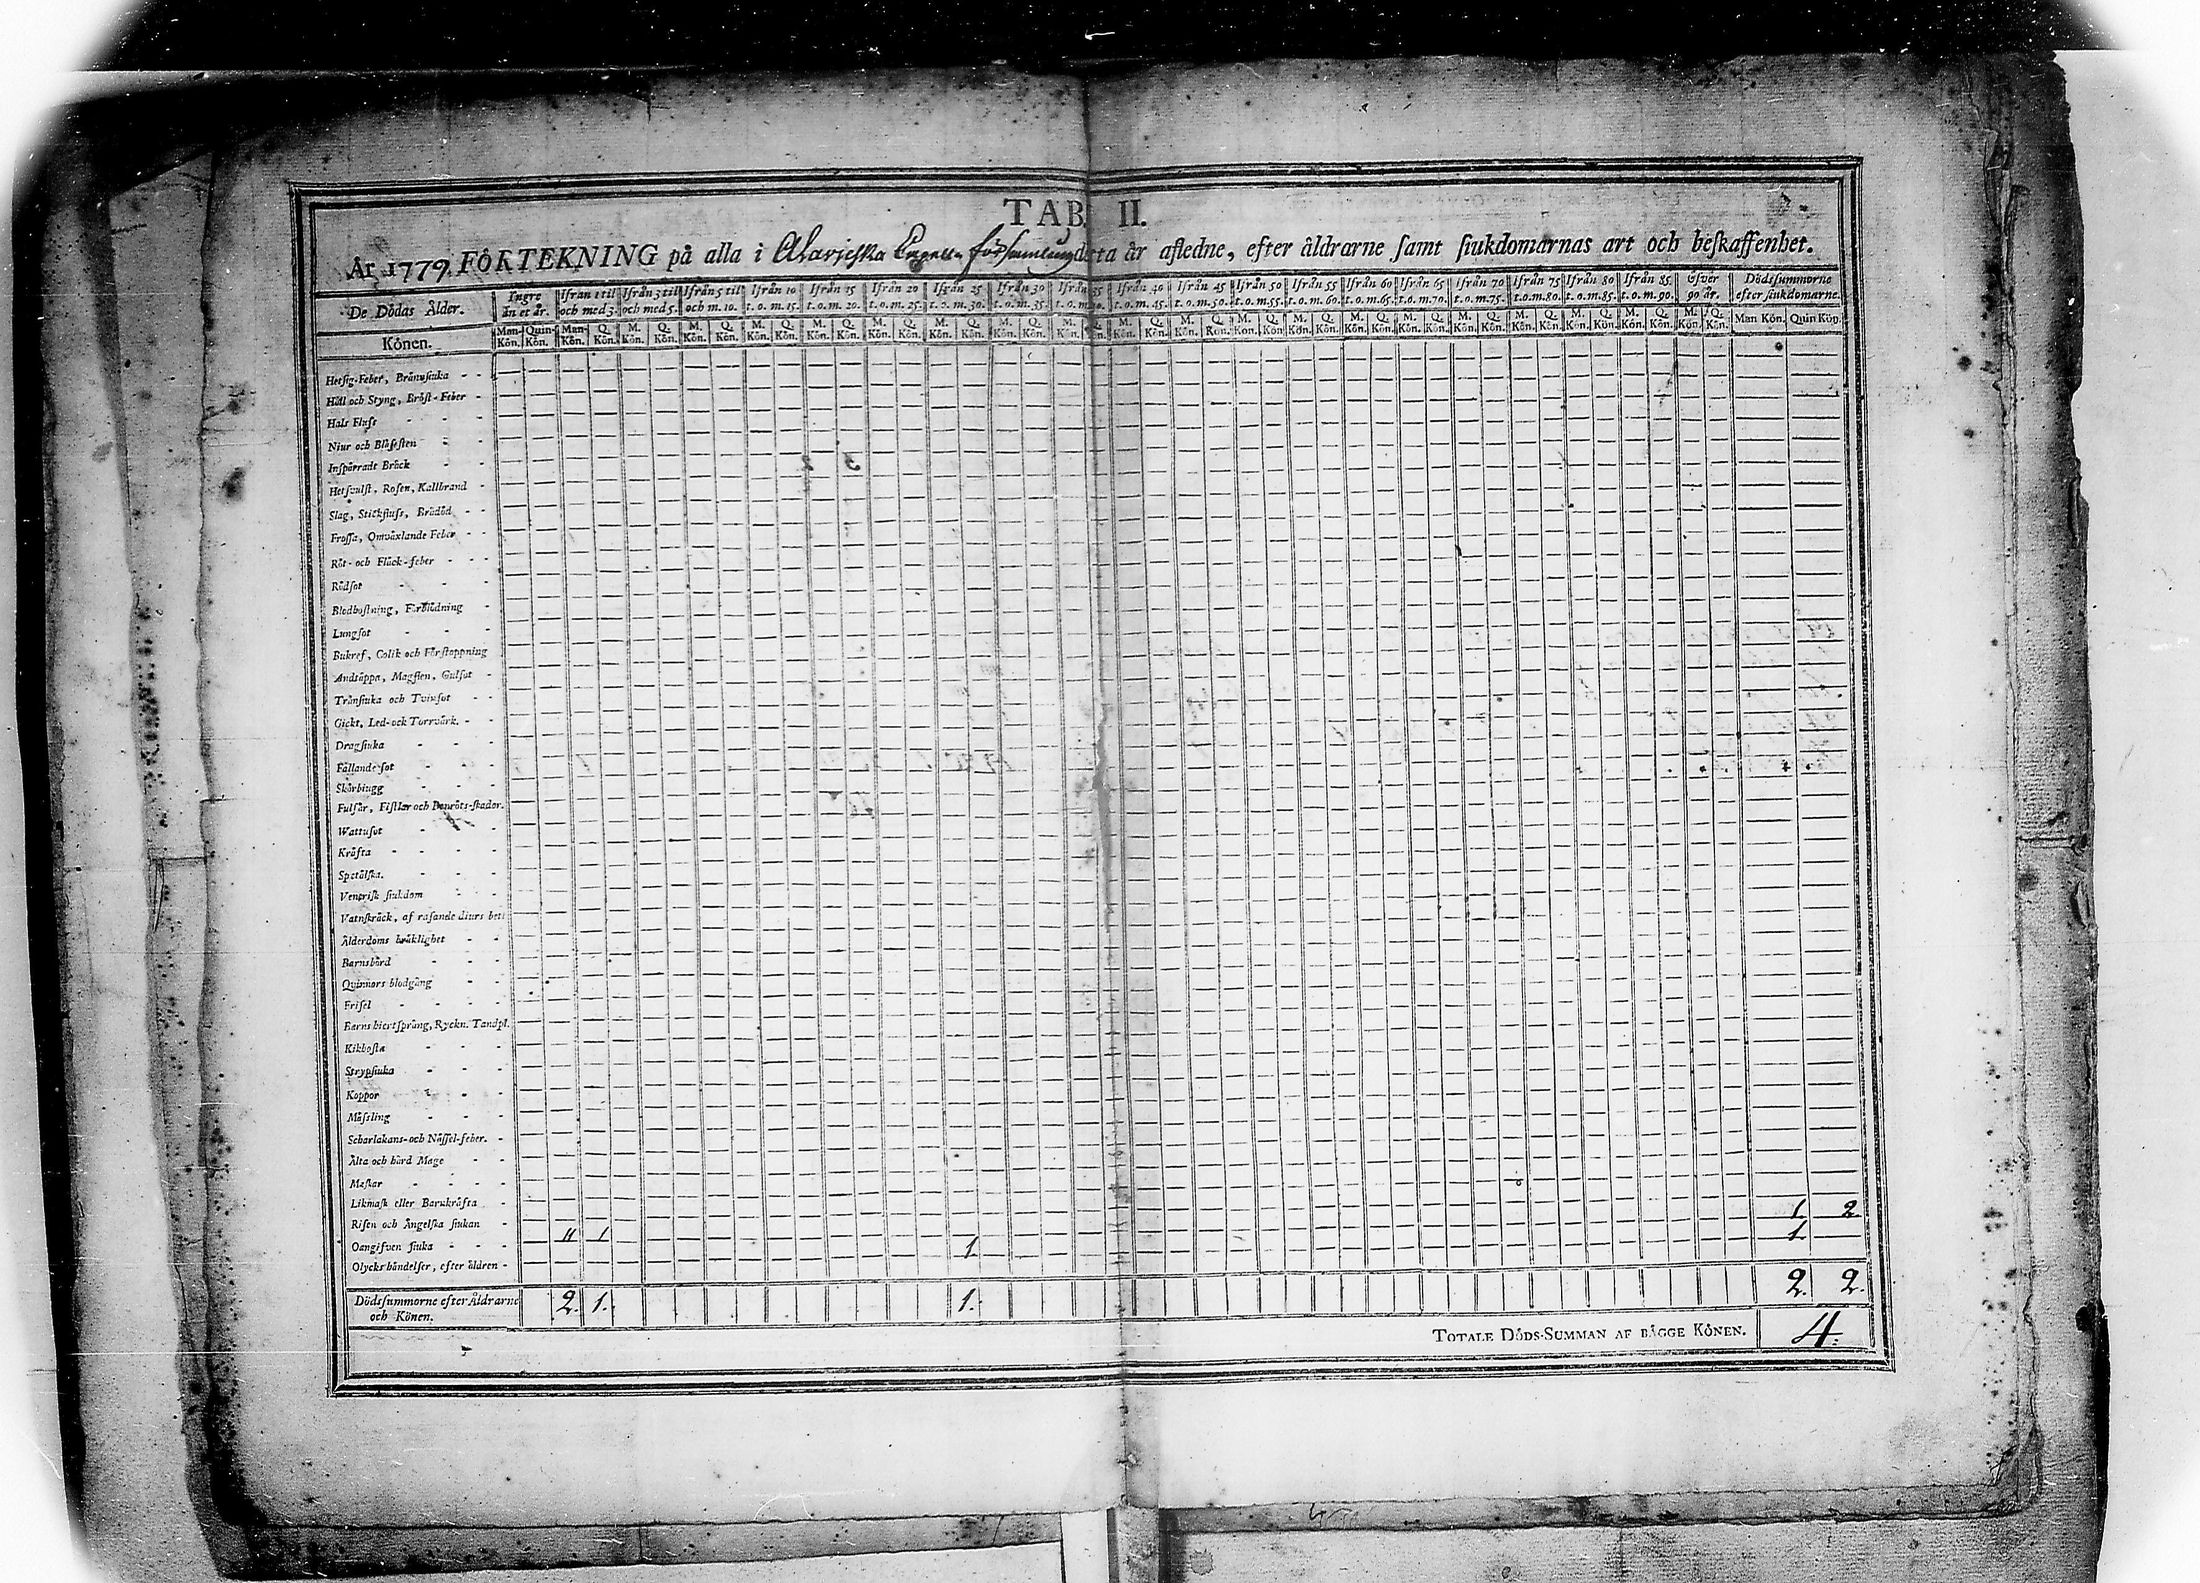 TAB. II.
År 1779. FÖRTEKNING på alla i Alavieska Capells församling detta år afledne, efter åldrarne samt siukdomarnas art och beskaffenhet.
De Dödas Ålder. Ingre än et år. Ifrån 1 til och med 3. Ifrån 3 til och med 5. Ifrån 5 til och m. 10. Ifrån 10 t.o.m. 15. Ifrån 15 t.o.m. 20. Ifrån 20 t.o.m. 25. Ifrån 25 t.o.m. 30. Ifrån 30 t.o.m. 35. Ifrån 35 t.o.m. 40. Ifrån 40 t.o.m. 45. Ifrån 45 t.o.m. 50. Ifrån 50 t.o.m. 55. Ifrån 55 t.o.m. 60. Ifrån 60 t.o.m. 65. Ifrån 65 t.o.m. 70. Ifrån 70 t.o.m. 75. Ifrån 75 t.o.m. 80. Ifrån 80 t.o.m. 85. Ifrån 85 t.o.m. 90. Öfver 90 år. Dödssummorne efter siukdomarne.
Könen. Man-Kön. Quin-Kön. Man-Kön. Q. Kön. M. Kön. Q. Kön. M. Kön. Q. Kön. M. Kön. Q. Kön. M. Kön. Q. Kön. M. Kön. Q. Kön. M. Kön. Q. Kön. M. Kön. Q. Kön. M. Kön. Q. Kön. M. Kön. Q. Kön. M. Kön. Q. Kön. M. Kön. Q. Kön. M. Kön. Q. Kön. M. Kön. Q. Kön. M. Kön. Q. Kön. M. Kön. Q. Kön. M. Kön. Q. Kön. M. Kön. Q. Kön. M. Kön. Q. Kön. M. Kön. Q. Kön. Man Kön. Quin Kön.
Hetsig-Feber, Brännsiuka - -
Håll och Styng, Bröst-Feber -
Hals Fluss - - -
Niur och Blåsesten - -
Inspärradt Bråck - -
Hetsvulst, Rosen, Kallbrand -
Slag, Stickfluss, Brådöd - -
Frossa, Omväxlande Feber - -
Röt- och Fläck-feber - -
Rödsot - - -
Blodhostning, Förblödning -
Lungsot - - -
Bukref, Colik och Förstoppning
Andtäppa, Magsten, Gulsot -
Trånsiuka och Tvinsot - -
Gickt, Led- och Torrvärk. - -
Dragsiuka - - -
Fallandesot - - -
Skörbiugg - - -
Fulsår, Fistlar och Benröts-skador.
Wattusot - - -
Kräfta - - - -
Spetälska. - - -
Venerisk siukdom - -
Vatnskräck, af rasande diurs bett
Ålderdoms bräklighet - -
Barnsbörd - - -
Qvinnors blodgång - -
Frisel - - - -
Barns hiertsprång, Ryckn. Tandpl.
Kikhosta - - -
Strypsiuka - - -
Koppor - - -
Mässling - - -
Scharlakans- och Nässel-feber. -
Älta och hård Mage - -
Maskar - - - -
Likmask eller Barnkräfta -
Risen och Ängelska siukan -
Oangifven siuka - - - 11 1 1. 2.
Olyckshändelser, efter åldren - 1. 1.
Dödssummorne efter Åldrarne 2. 1. 1. 2. 2.
och Könen.
TOTALE DÖDS-SUMMAN AF BÄGGE KÖNEN. 4.